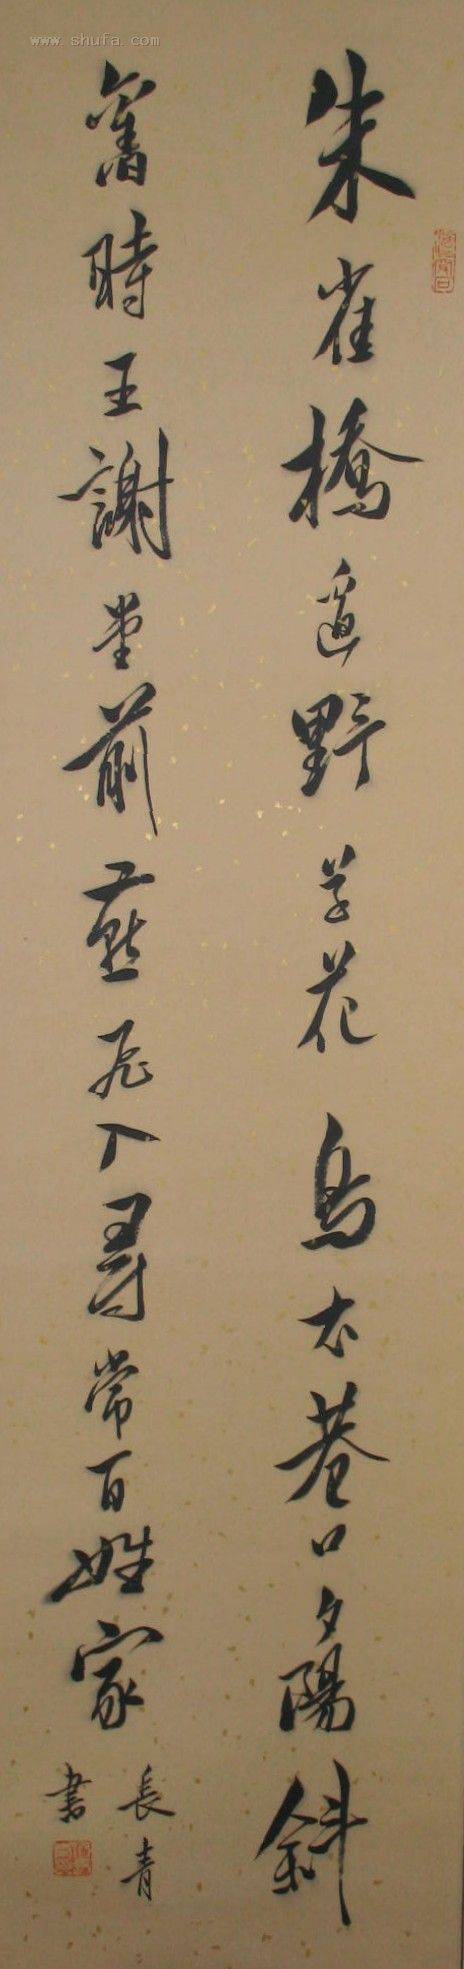 www.shufa.com
朱雀橋邊野草花烏衣巷口夕陽斜
舊時王謝堂前燕飛入尋常百姓家
長青
書